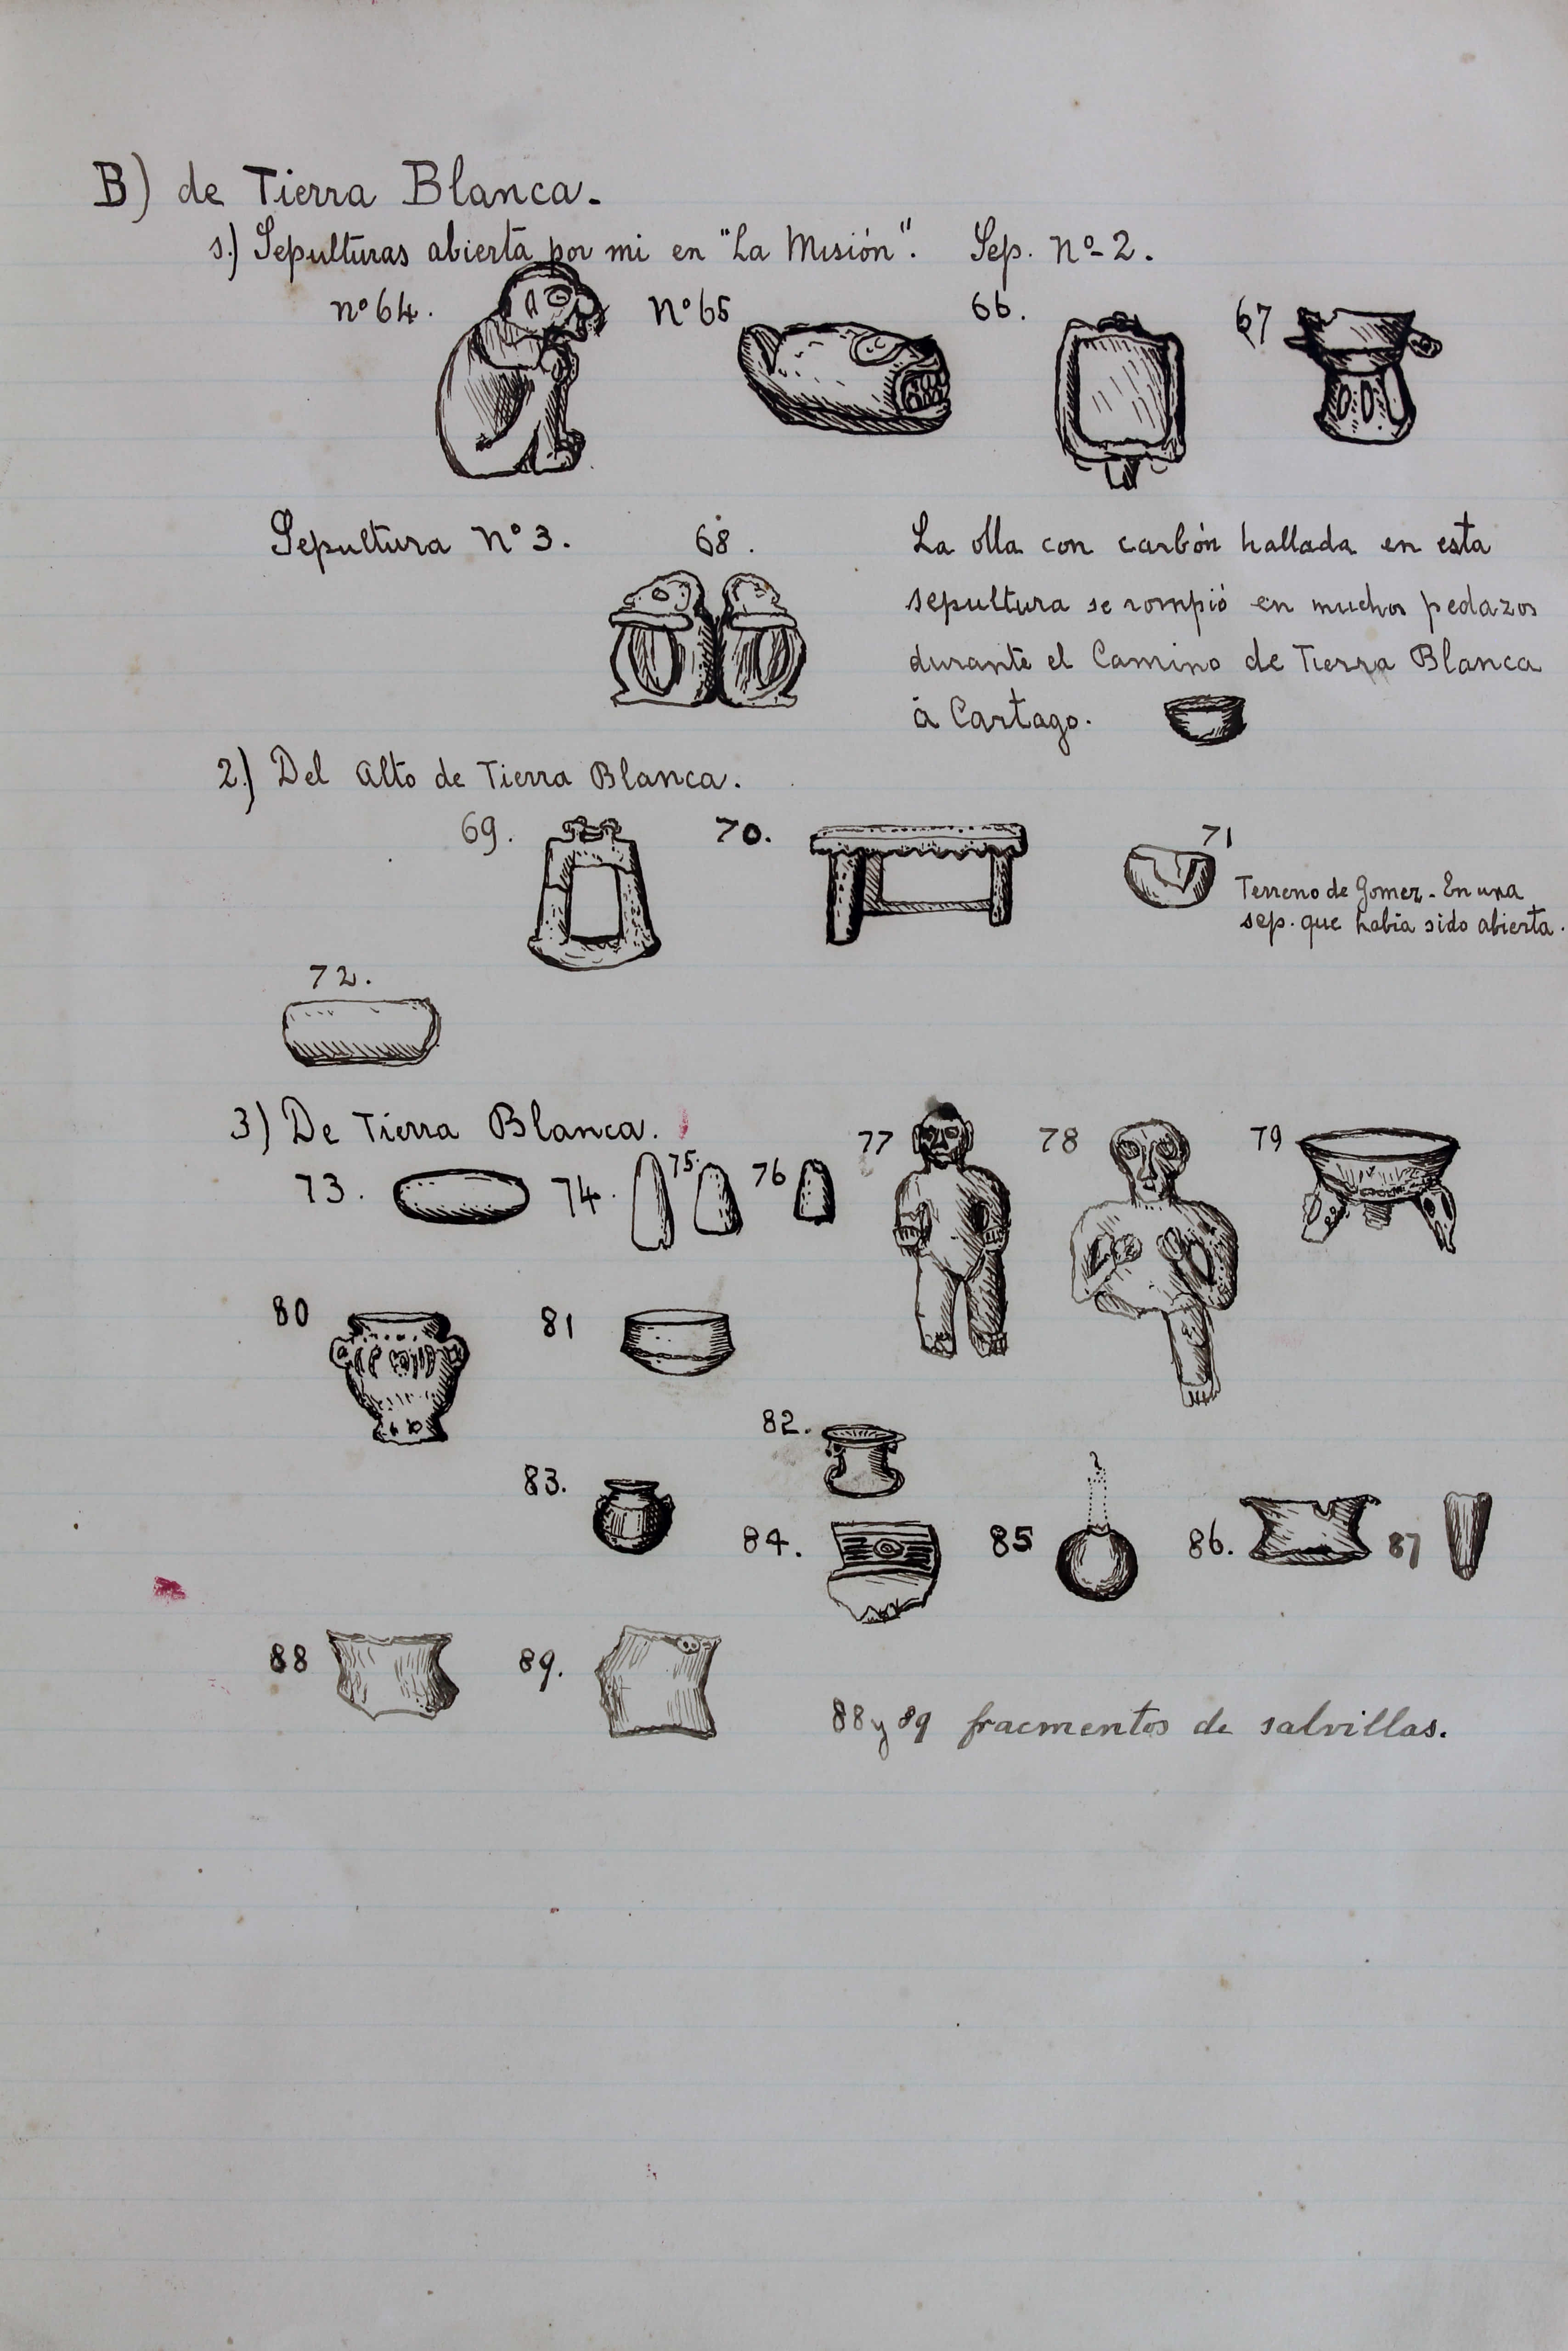 B) de Tierra Blanca.
1.) Sepulturas abierta por mi en "La Misión". Sep. Nº 2.
nº 64. Nº 65 66. 67
Sepultura Nº 3. 68.
La olla con carbón hallada en esta
sepultura se rompió en muchos pedazos
durante el Camino de Tierra Blanca
à Cartago.
2.) Del Alto de Tierra Blanca.
69. 70. 71
Terreno de Gomez - En una
sep. que habia sido abierta.
72.
3) De Tierra Blanca.
73. 74. 75. 76 77 78 79
80 81
82.
83.
84. 85 86. 87
88 89.
88 y 89 fracmentos de salvillas.